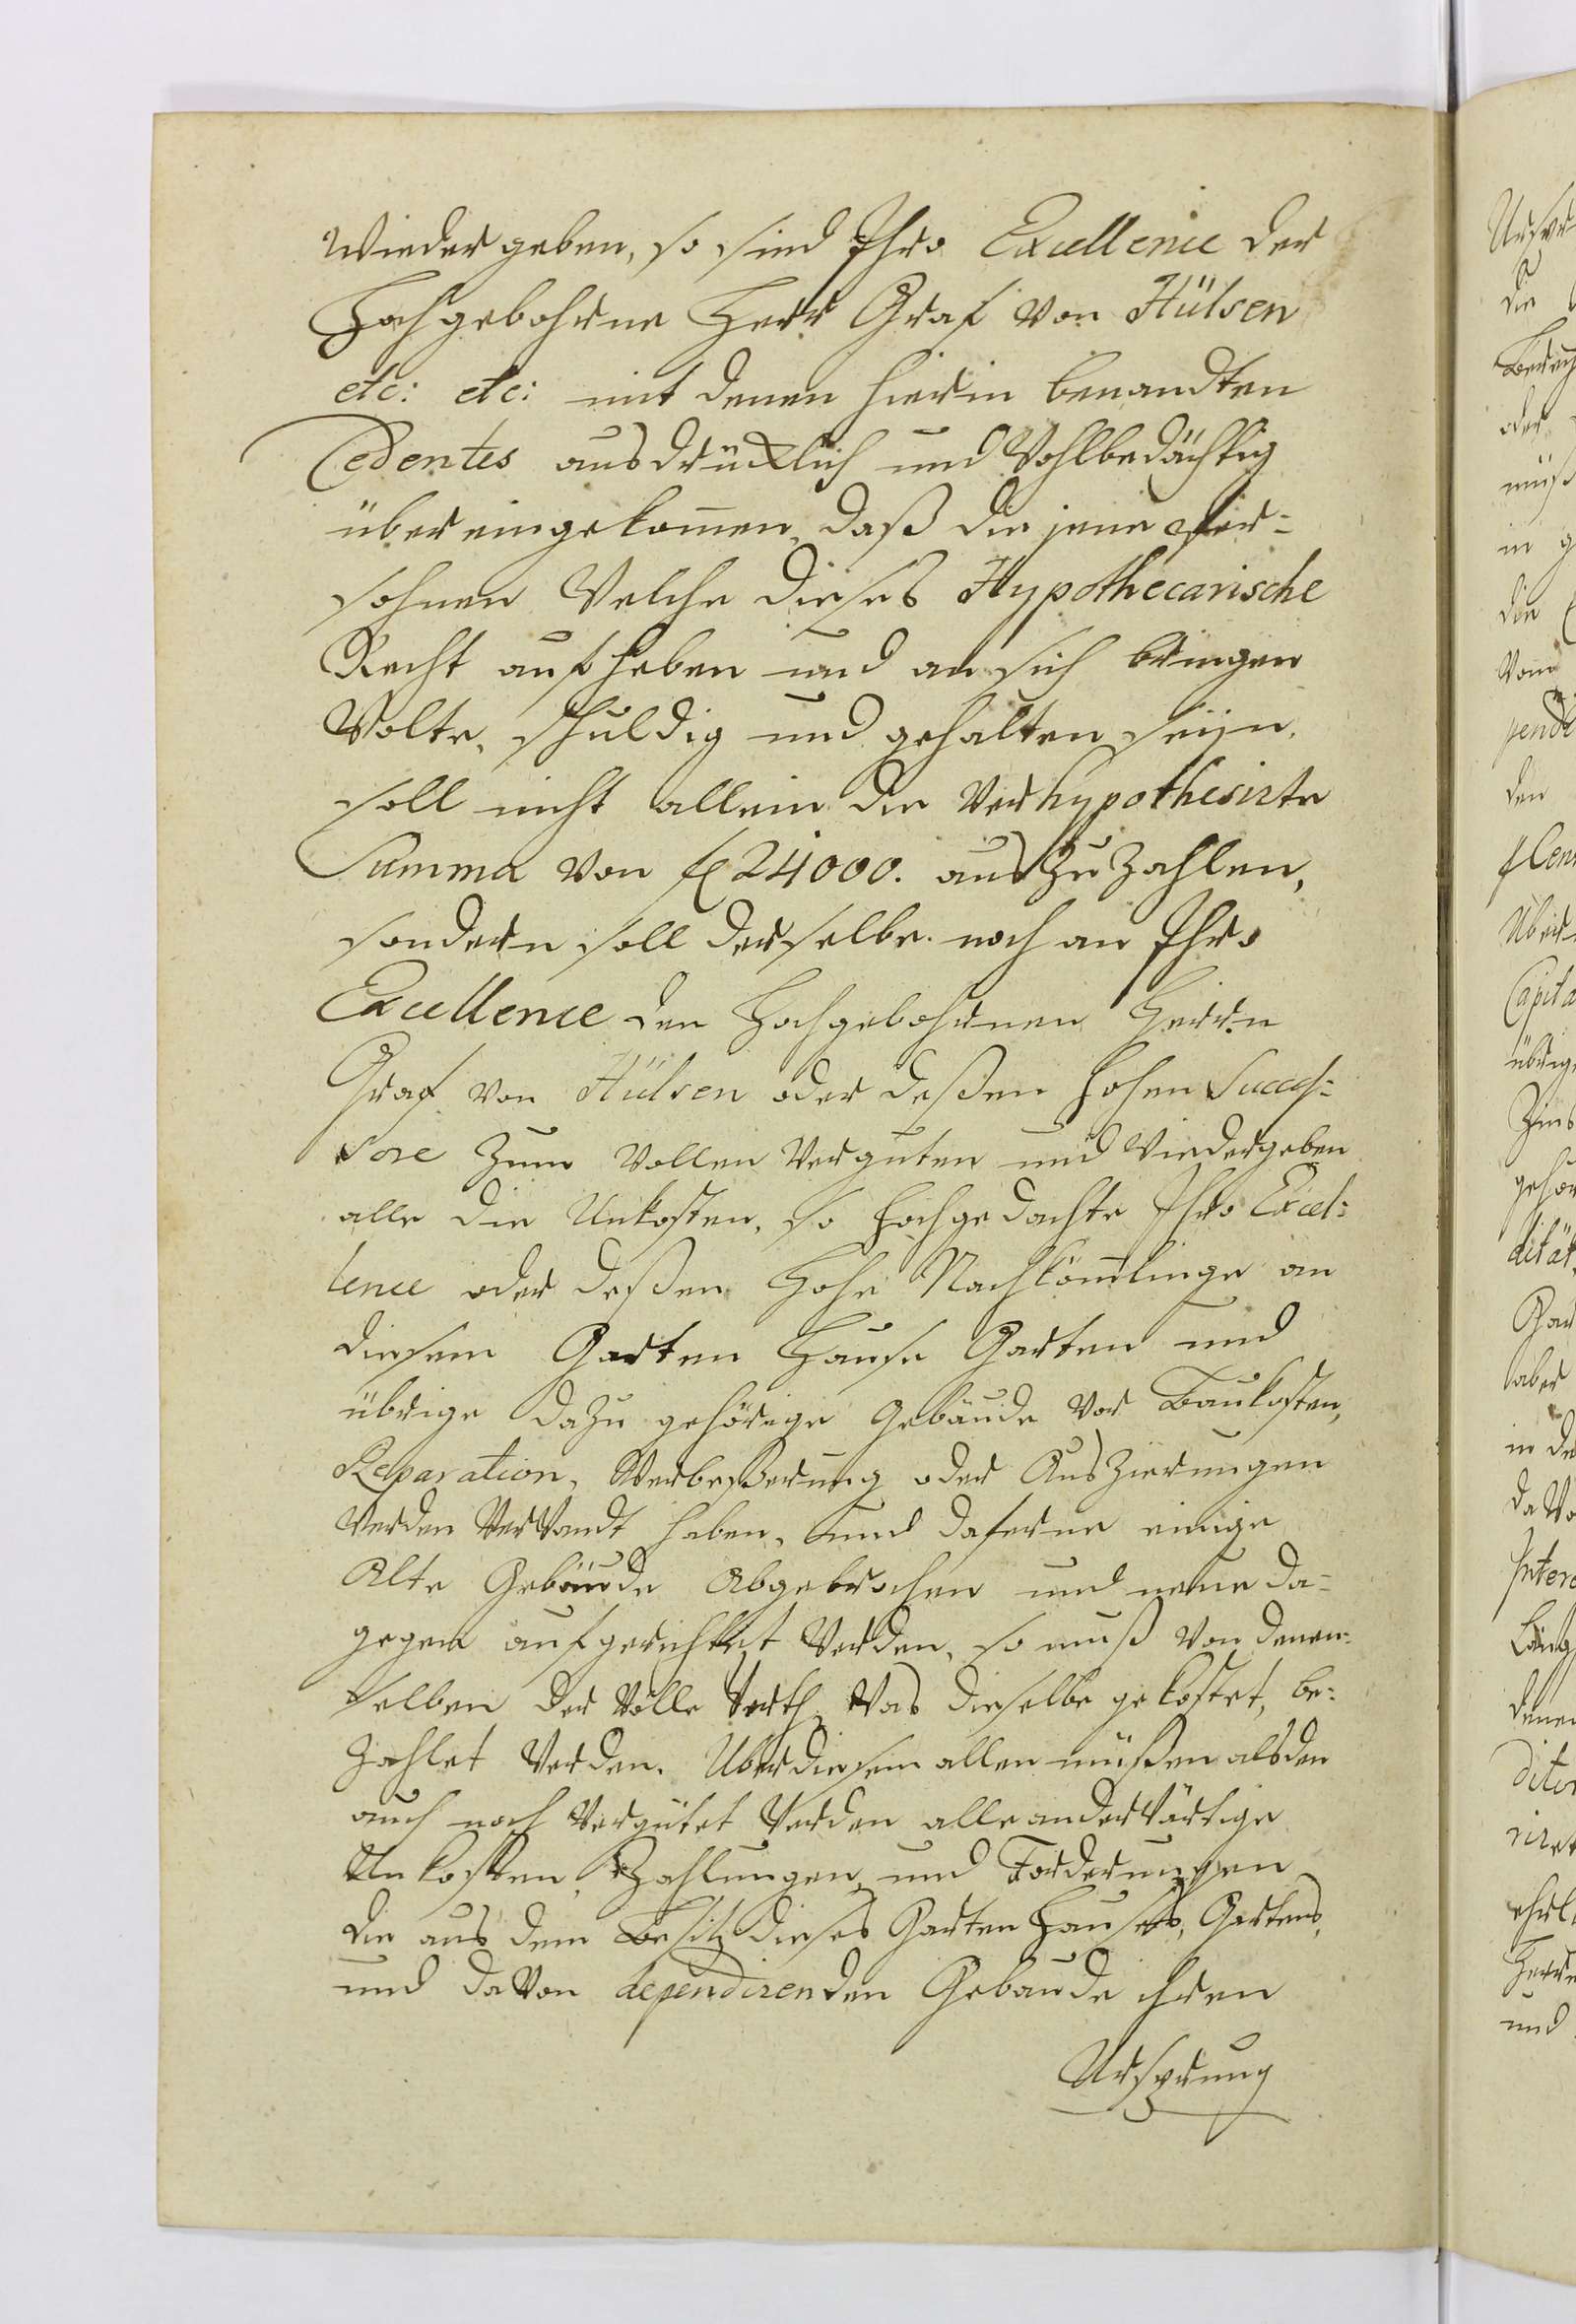 Wieder geben, so sind Ihro Excellence der
Hochgebohrne Herr Graf von Hülsen
etc: etc: mit denen hierin benandten
Cedentes ausdrücklich und Wohlbedächtig
übereingekom̄en, daß die jene Per=
sohnen Welche dieses Hypothecarische
Recht aufheben und an sich bringen
Wolte, schuldig und gehalten seÿn,
soll nicht allein die Verhypothesirte
Summa von fl 24000. auszuzahlen,
sondern soll derselbe noch an Ihro
Excellence den Hochgebohrnen Herrn
Graf von Hülsen oder deßen hohen Succes=
sore zum Vollen Verguten und Wiedergeben
alle die Unkosten, so hochgedachte Ihro Excel=
lence oder deßen Hohe Nachköm̄linge an
diesem Garten Hause Garten und
übrige dazu gehörige Gebäude vor Baukosten,
Reparation, Verbeßerung oder Auszierungen
Werden VerWandt haben, und daferne einige
Alte Gebäude Abgebrochen und neue da=
gegen aufgerichtet Werden, so muß von denen=
selben der Volle Werth, Was dieselbe gekostet, be=
zahlet Werden. Uber diesem allen müßen alsden
auch noch Vergütet Werden alle anderWärtige
Unkosten, Zahlungen, und Forderungen
die aus dem Besitz dieses Garten Hauses, Gartens,
und daVon dependirenden Gebäude ihren
Ursprung
Capita
aber
und